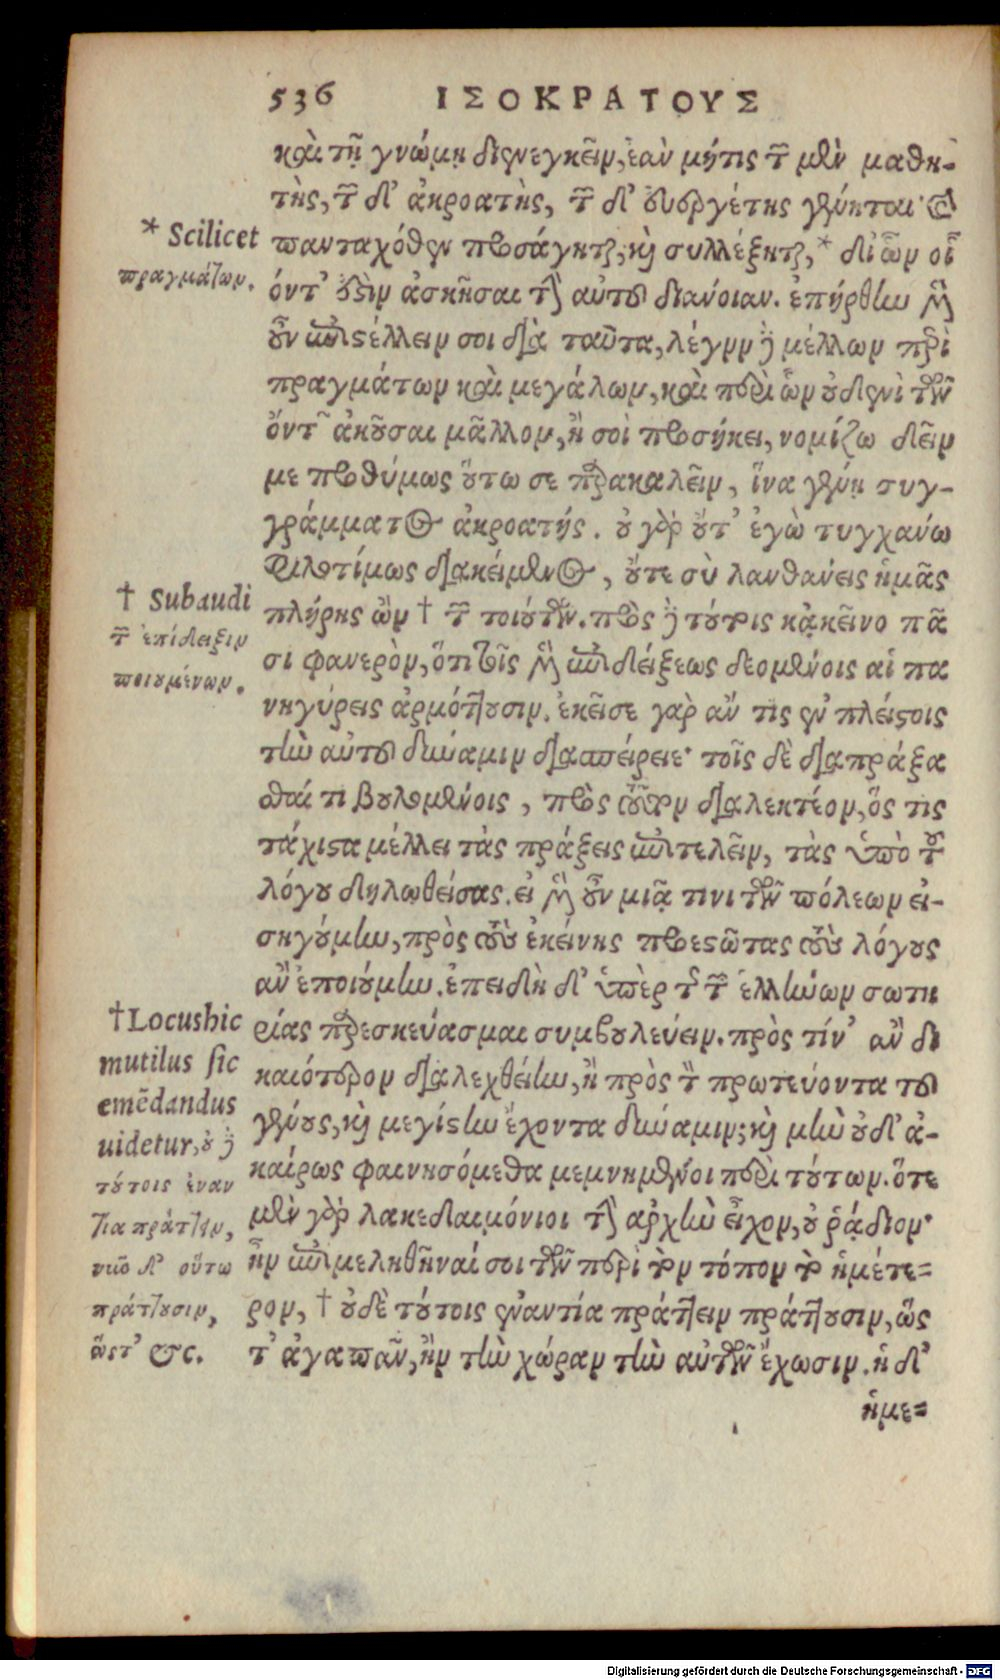 536 ΙΣΟΚΡΑΤΟΥΣ
καὶ τῇ γνώμῃ διενεγκεῖν, ἐὰν μήτις τῶν μὲν μαθη-
τὴς, τῶν δ' ἀκροατὴς, τῶν δ' εὑρετὴς γένηται· καὶ
πανταχόθεν προσάγηται, καὶ συλλέξηται,* δι' ὧν οἷ
όντ' ἐστὶν ἀσκῆσαι τὴν αὑτοῦ διάνοιαν. ἐπήρθην μὲν
οὖν ἐπιστέλλειν σοι διὰ ταῦτα, λέγειν δὲ μέλλων περὶ
πραγμάτων καὶ μεγάλων, καὶ περὶ ὧν οὐδενὶ τῶν
ὄντων ἀκοῦσαι μᾶλλον, ἢ σοὶ προσήκει, νομίζω δεῖν
με προθύμως οὕτω σε παρακαλεῖν, ἵνα γένῃ συγ-
γράμματος ἀκροατής. οὐ γὰρ οὔτ' ἐγὼ τυγχάνω
φιλοτίμως διακείμενος, οὔτε σὺ λανθάνεις ἡμᾶς
πλήρης ὢν † τῶν τοιούτων. πρὸς δὲ τούτοις κἀκεῖνο πᾶ
σι φανερὸν, ὅτι τοῖς μὲν ἐπιδείξεως δεομένοις αἱ πα
νηγύρεις ἁρμόττουσιν. ἐκεῖσε γὰρ ἄν τις ἐν πλείστοις
τὴν αὑτοῦ δύναμιν διασπείρειε· τοῖς δὲ διαπράξα
σθαί τι βουλομένοις, πρὸς τοῦτον διαλεκτέον, ὅς τις
τάχιστα μέλλει τὰς πράξεις ἐπιτελεῖν, τὰς ὑπὸ τοῦ
λόγου δηλωθείσας. εἰ μὲν οὖν μιᾷ τινι τῶν πόλεων εἰ-
σηγούμην, πρὸς τοὺς ἐκείνης προεστῶτας τοὺς λόγους
ἂν ἐποιούμην. ἐπειδὴ δ' ὑπὲρ τῆς τῶν ἑλλήνων σωτη
ρίας παρεσκεύασμαι συμβουλεύειν. πρὸς τίν' ἂν δι
καιότερον διαλεχθείην, ἢ πρὸς τὸν πρωτεύοντα τοῦ
γένους, καὶ μεγίστην ἔχοντα δύναμιν; καὶ μὴν οὐδ' ἀ-
καίρως φανησόμεθα μεμνημένοι περὶ τούτων. ὅτε
μὲν γὰρ λακεδαιμόνιοι τὴν ἀρχὴν εἶχον, οὐ ῥᾴδιον·
ἦν ἐπιμεληθῆναί σοι τῶν περὶ τὸν τόπον τὸν ἡμέτε=
ρον, † οὐδὲ τούτοις ἐναντία πράττειν πράττουσιν, ὥς
τ' ἀγαπᾶν, ἢν τὴν χώραν τὴν αὑτῶν ἔχωσιν. ἡ δ'
ἡμε=
* Scilicet
πραγμάτων.
† Subaudi
τῶν ἐπίδειξιν
ποιουμένων.
†Locus hic
mutilus sic
emēdandus
uidetur, οὐ δὲ
τούτοις ἐναν
τία πράττειν,
νῦν δ' οὕτω
πράττουσιν,
ὥστ' &c.
Digitalisierung gefördert durch die Deutsche Forschungsgemeinschaft - DFG